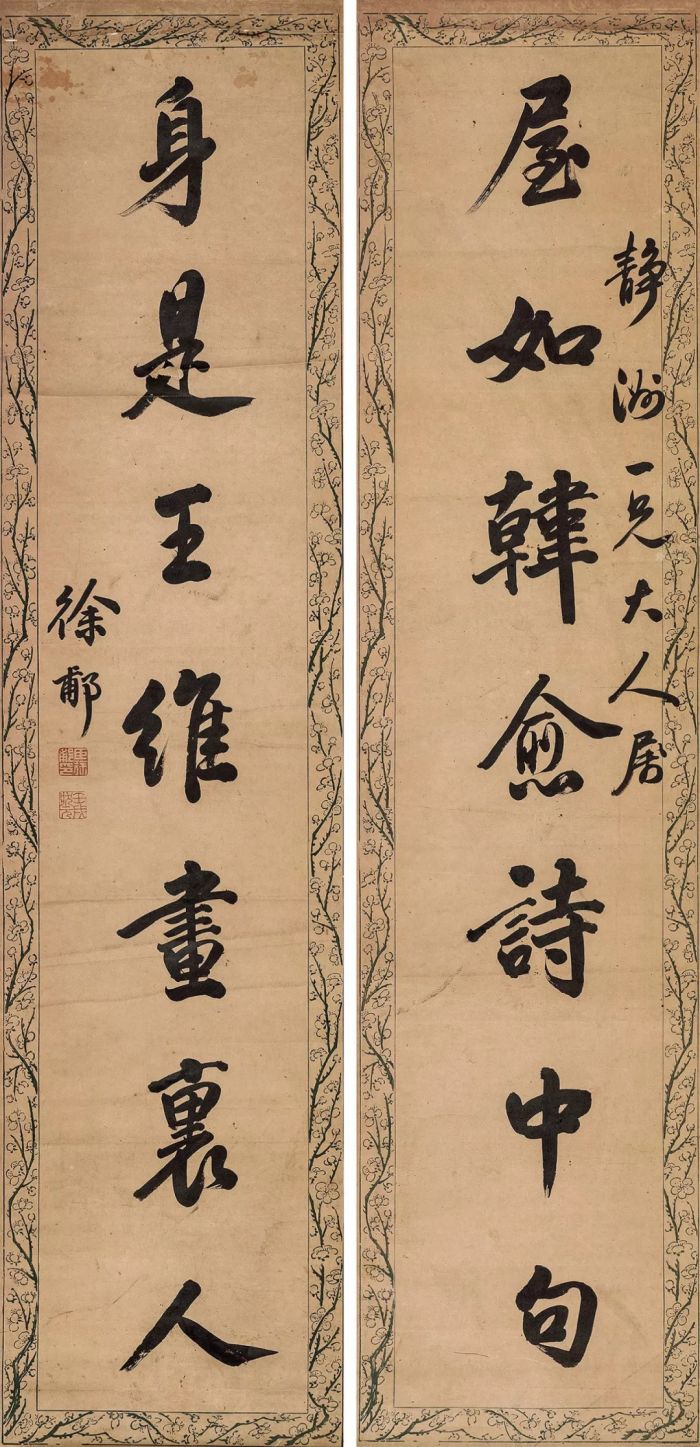 静洲一兄大人属
屋如韓愈詩中句
身是王維畫裏人
徐郙